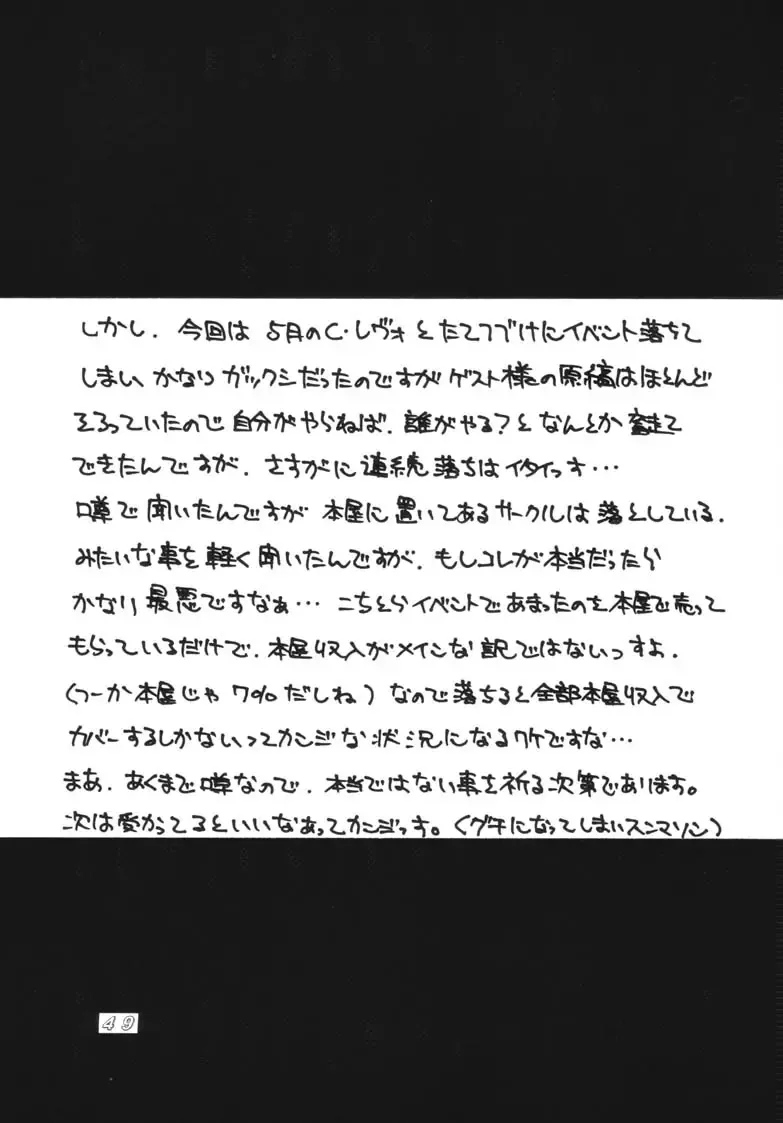 しかし、今回は5月のC・レヴォとたてつづけにイベント落ちて
しまい、かなりガックシだったのですがゲスト様の原稿はほとんど
そろっていたので自分がやらねば、誰がやる?となんとか奮走して
できたんですが、さすがに連続落ちはイタイっす…
噂で聞いたんですが本屋に置いてあるサークルは落としている。
みたいな事を軽く聞いたんですが、もしコレが本当だったら
かなり最悪ですなぁ…こちとらイベントであまったのを本屋で売って
もらっているだけで、本屋収入がメインな訳ではないっすよ。
(つーか本屋じゃ7%だしね)なので落ちると全部本屋収入で
カバーするしかないってカンジな状況になるワケですな…
まあ、あくまで噂なので、本当ではない事を祈る次第であります。
次は受かってるといいなあってカンジっす。(グチになってしまいスンマソン)
49